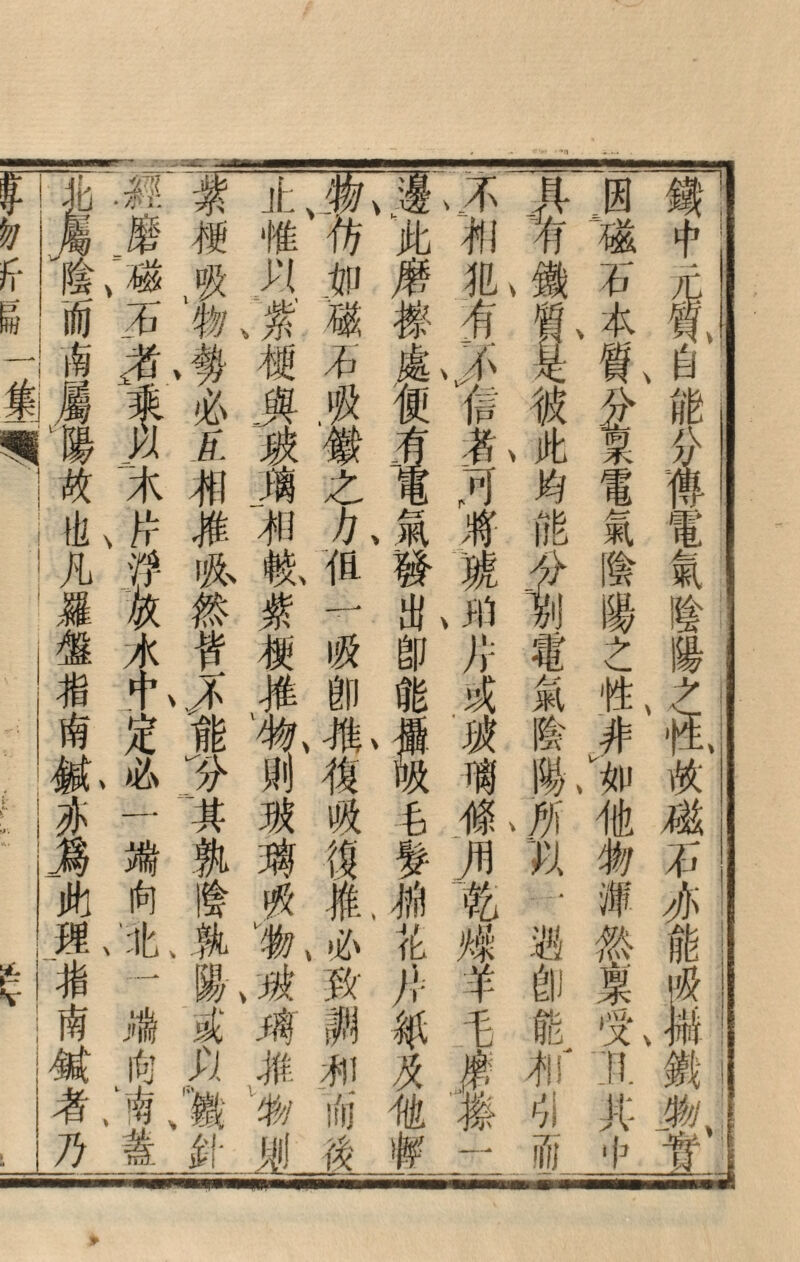 鐵中元質、自能分傳電氣陰陽之性、故磁石亦能吸攝鐵物、實
因磁石本質、分稟電氣陰陽之性、非如他物渾然稟受、且其中
具有鐵質、是彼此均能分別電氣陰陽、所以一遇卽能相引而
不相犯、有不信者、可將琥珀片或玻璃條、用乾燥羊毛磨擦一
邊、此磨擦處、便有電氣發出、卽能攝吸毛髮棉花片紙及他輕
物、仿如磁石吸鐵之力、但一吸卽推、復吸復推、必致調和而後
止、惟以紫梗與玻璃相較、紫梗推物、則玻璃吸物、玻璃推物則
紫梗吸物、勢必互相推吸、然皆不能分其孰陰孰陽、或以鐵針
經磨磁石者、乘以木片浮放水中、定必一端向北、一端向南、蓋
北屬陰、而南屬陽故也、凡羅盤指南鍼、亦爲此理、指南鍼者、乃
博物新編 一集